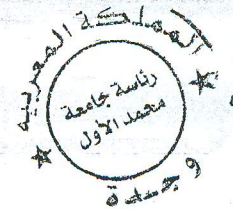 المملكة المغربية
رئاسة جامعة
محمد الأول
وجدة